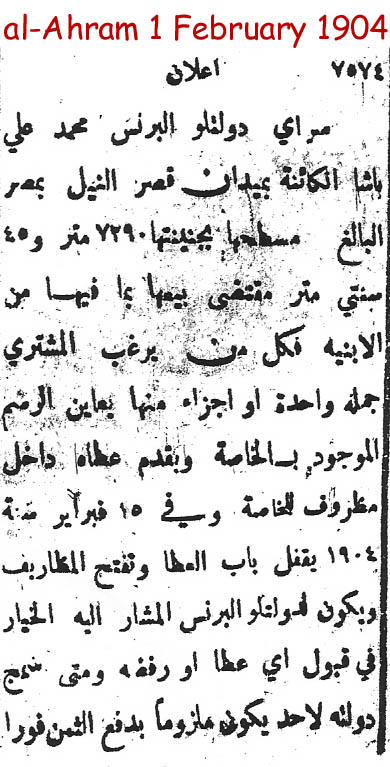 al-Ahram 1 February 1904
٧٥٧٤ اعلان
سراي دولتلو البرنس محمد علي
باشا الكائنة بميدان قصر النيل بمصر
البالغ مسطحها بجنينتها ٧٢٩٠ متر و٤٥
سنتي متر مقتضى بيعها بما فيها من
الابنيه فكل من يرغب المشتري
جمله واحدة او اجزاء منها يعاين الرسم
الموجود بالخاصة ويقدم عطاه داخل
مظروف للخاصة وفي ١٥ فبراير سنة
١٩٠٤ يقفل باب العطا وتفتح المظاريف
ويكون لدولتلو البرنس المشار اليه الخيار
في قبول اي عطا او رفضه ومتى سمح
دولته لاحد يكون ملزوماً بدفع الثمن فورا